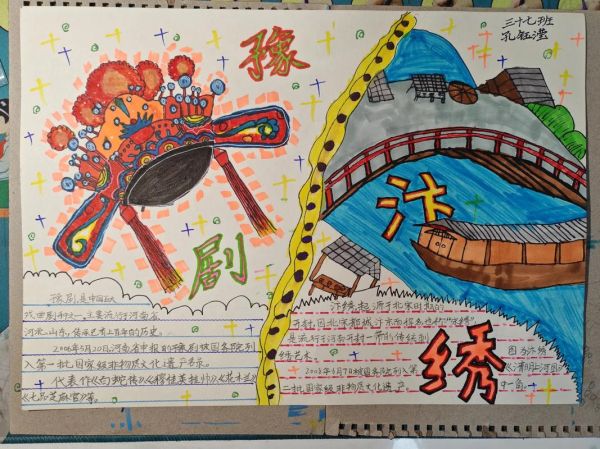 三十七班
孔钰滢
豫
剧
豫剧是中国五大
戏曲剧种之一,主要流行于河南省
河北、山东,传承已有上百年的历史。
2006年5月20日河南省申报的豫剧被国务院列
入第一批国家级非物质文化遗产名录。
代表作《白蛇传》《穆桂英挂帅》《花木兰》
《七品芝麻官》等。
汴
绣
汴绣,起源于北宋时期的
于河南开封一带的传统刺
绣艺术。
2008年6月7日被国务院列入第
二批国家级非物质文化遗产。
图为汴绣
《清明上河图》
中一角